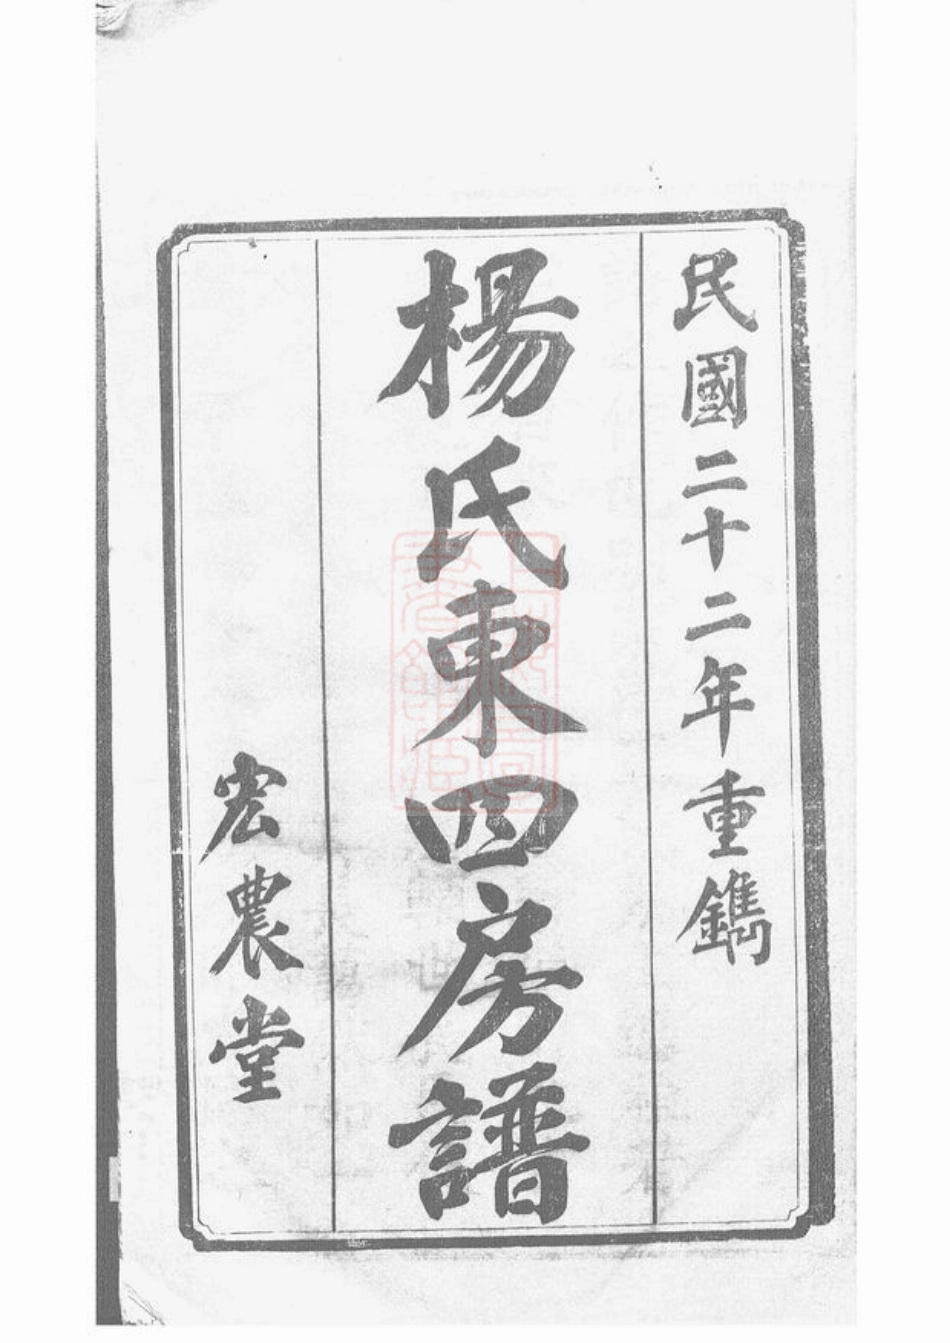 民國二十二年重鐫
楊氏東四房譜
宏農堂